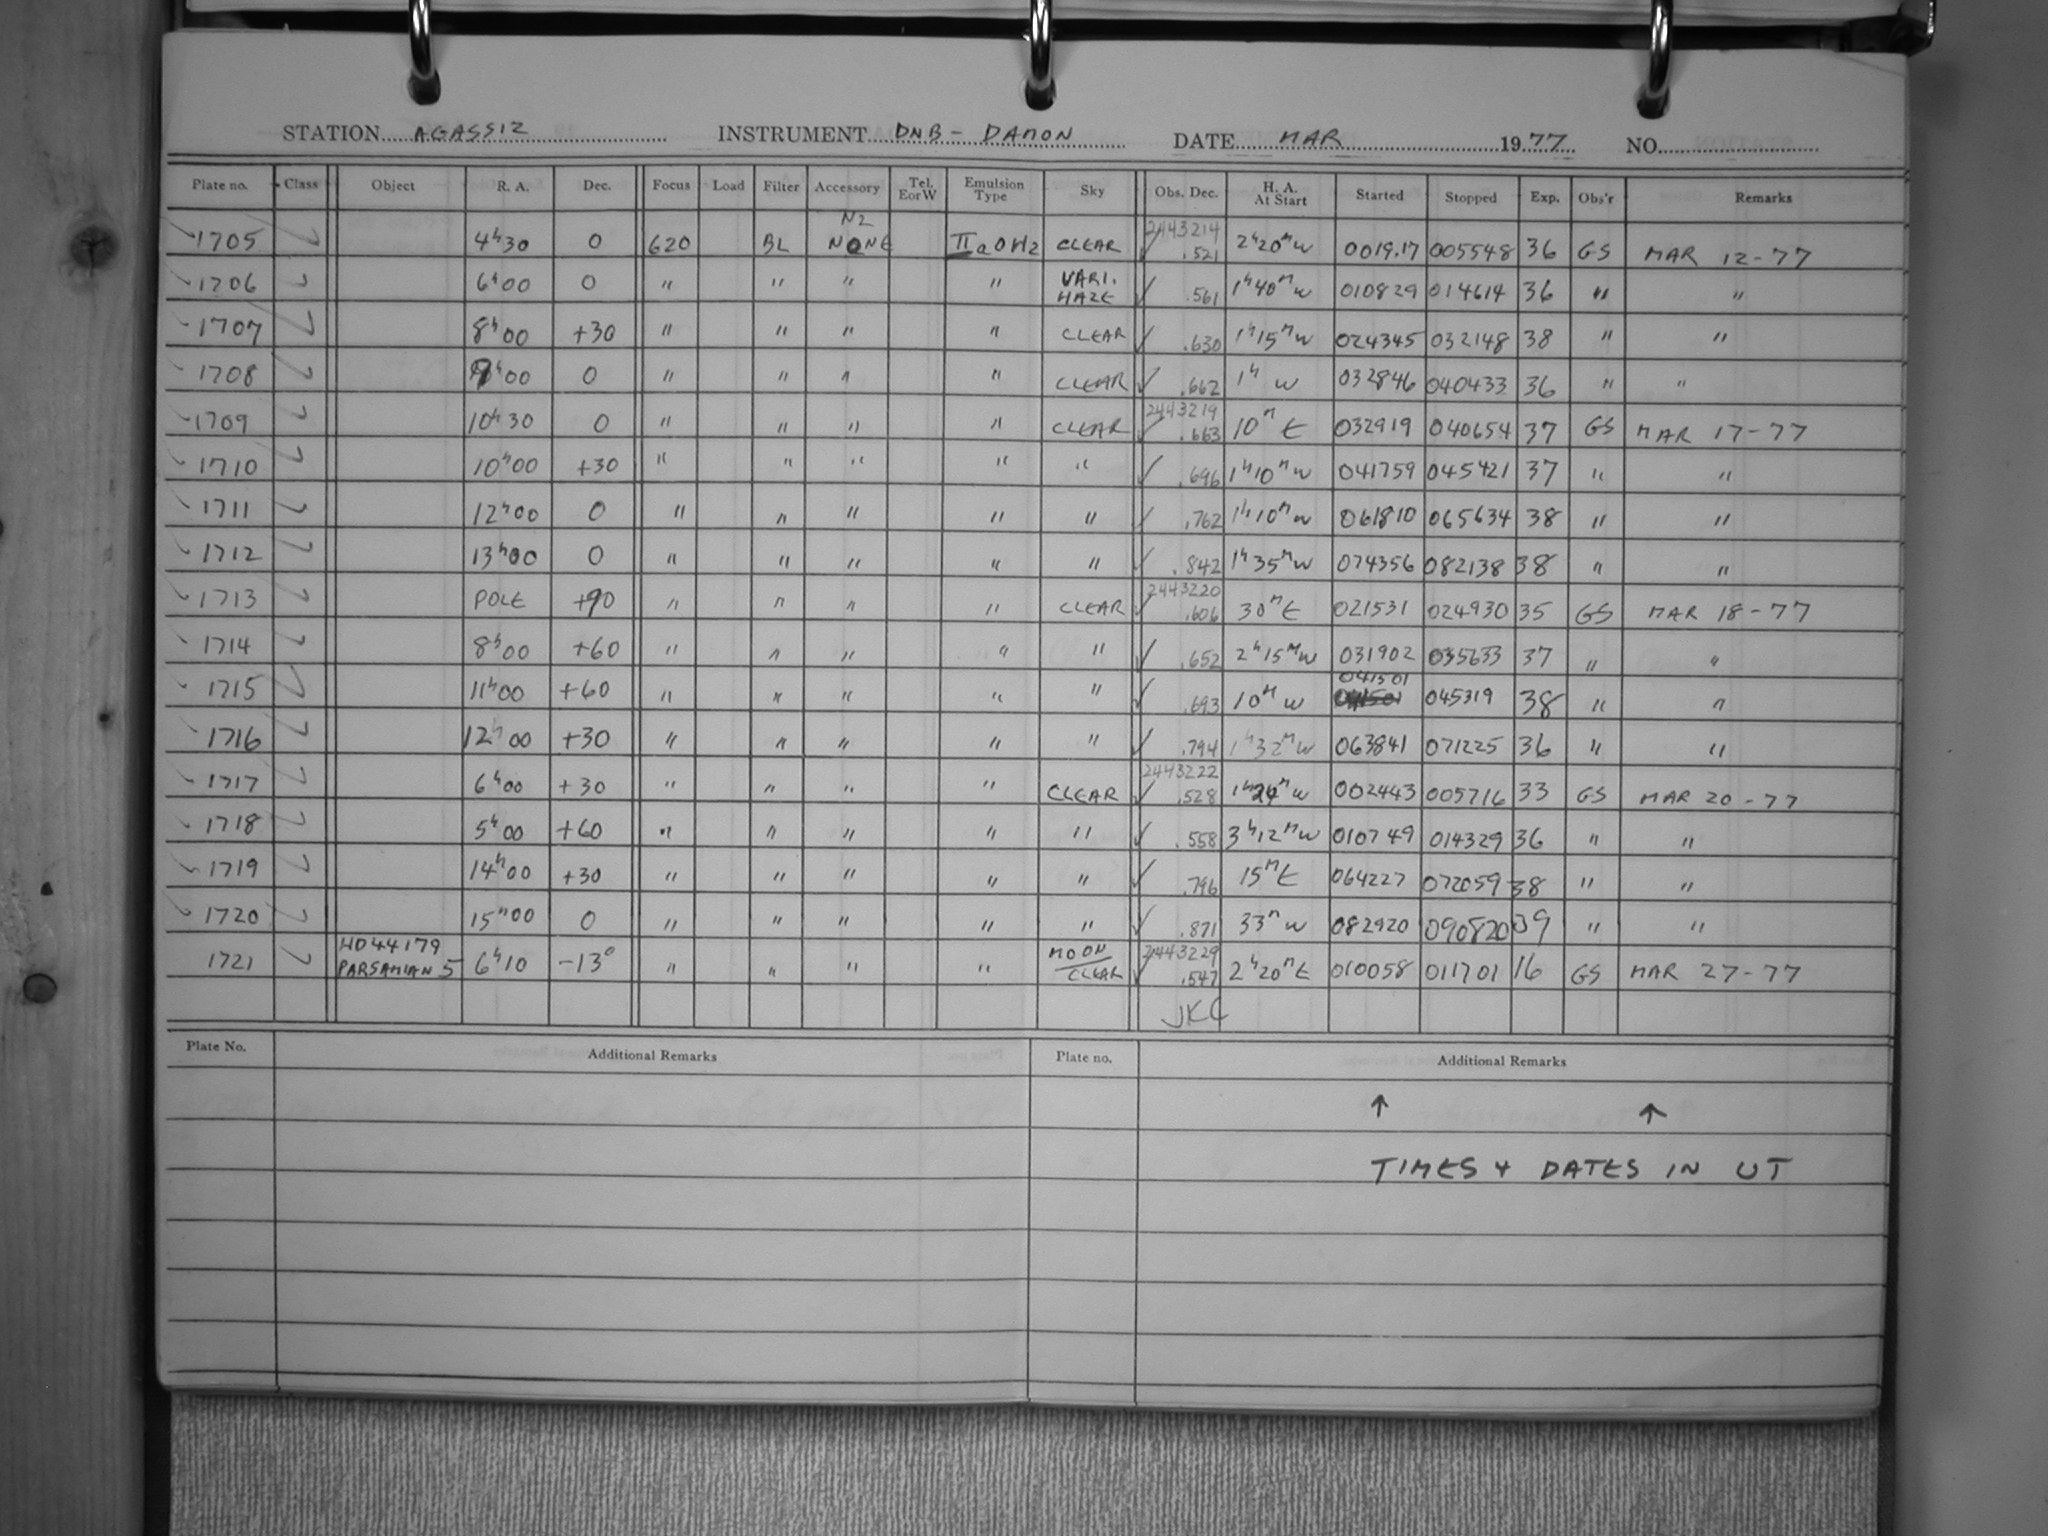 STATION AGASSIZ INSTRUMENT DNB - DAMON DATE MAR 1977 NO.
Plate no. Class Object R. A. Dec. Focus Load Filter Accessory Tel. EorW Emulsion Type Sky Obs. Dec. H. A. At Start Started Stopped Exp. Obs'r Remarks
1705 4h30 0 620 BL N2 NONE IIaOH2 CLEAR 2443214 .521 2h20m W 0019.17 005548 36 GS MAR 12-77
1706 6h00 0 " " " " VARI. HAZE .561 1h40m W 010829 014614 36 " "
1707 8h00 +30 " " " " CLEAR .630 1h15m W 024345 032148 38 " "
1708 9h00 0 " " " " CLEAR .662 1h W 032846 040433 36 " "
1709 10h30 0 " " " " CLEAR 2443219 .663 10m E 032919 040654 37 GS MAR 17-77
1710 10h00 +30 " " " " " .696 1h10m W 041759 045421 37 " "
1711 12h00 0 " " " " " .762 1h10m W 061810 065634 38 " "
1712 13h00 0 " " " " " .842 1h35m W 074356 082138 38 " "
1713 POLE +90 " " " " CLEAR 2443220 .606 30m E 021531 024930 35 GS MAR 18-77
1714 8h00 +60 " " " " " .652 2h15m W 031902 035633 37 " "
1715 11h00 +60 " " " " " .693 10m W 041501 045319 38 " "
1716 12h00 +30 " " " " " .794 1h32m W 063841 071225 36 " "
1717 6h00 +30 " " " " CLEAR 2443222 .528 1h24m W 002443 005716 33 GS MAR 20-77
1718 5h00 +60 " " " " " .558 3h12m W 010749 014329 36 " "
1719 14h00 +30 " " " " " .796 15m E 064227 072059 38 " "
1720 15h00 0 " " " " " .871 33m W 082920 090820 39 " "
1721 HD44179 PARSAMIAN 5 6h10 -13° " " " " MOON CLEAR 2443229 .547 2h20m E 010058 011701 16 GS MAR 27-77
Plate No. Additional Remarks Plate no. Additional Remarks
↑ ↑
TIMES + DATES IN UT